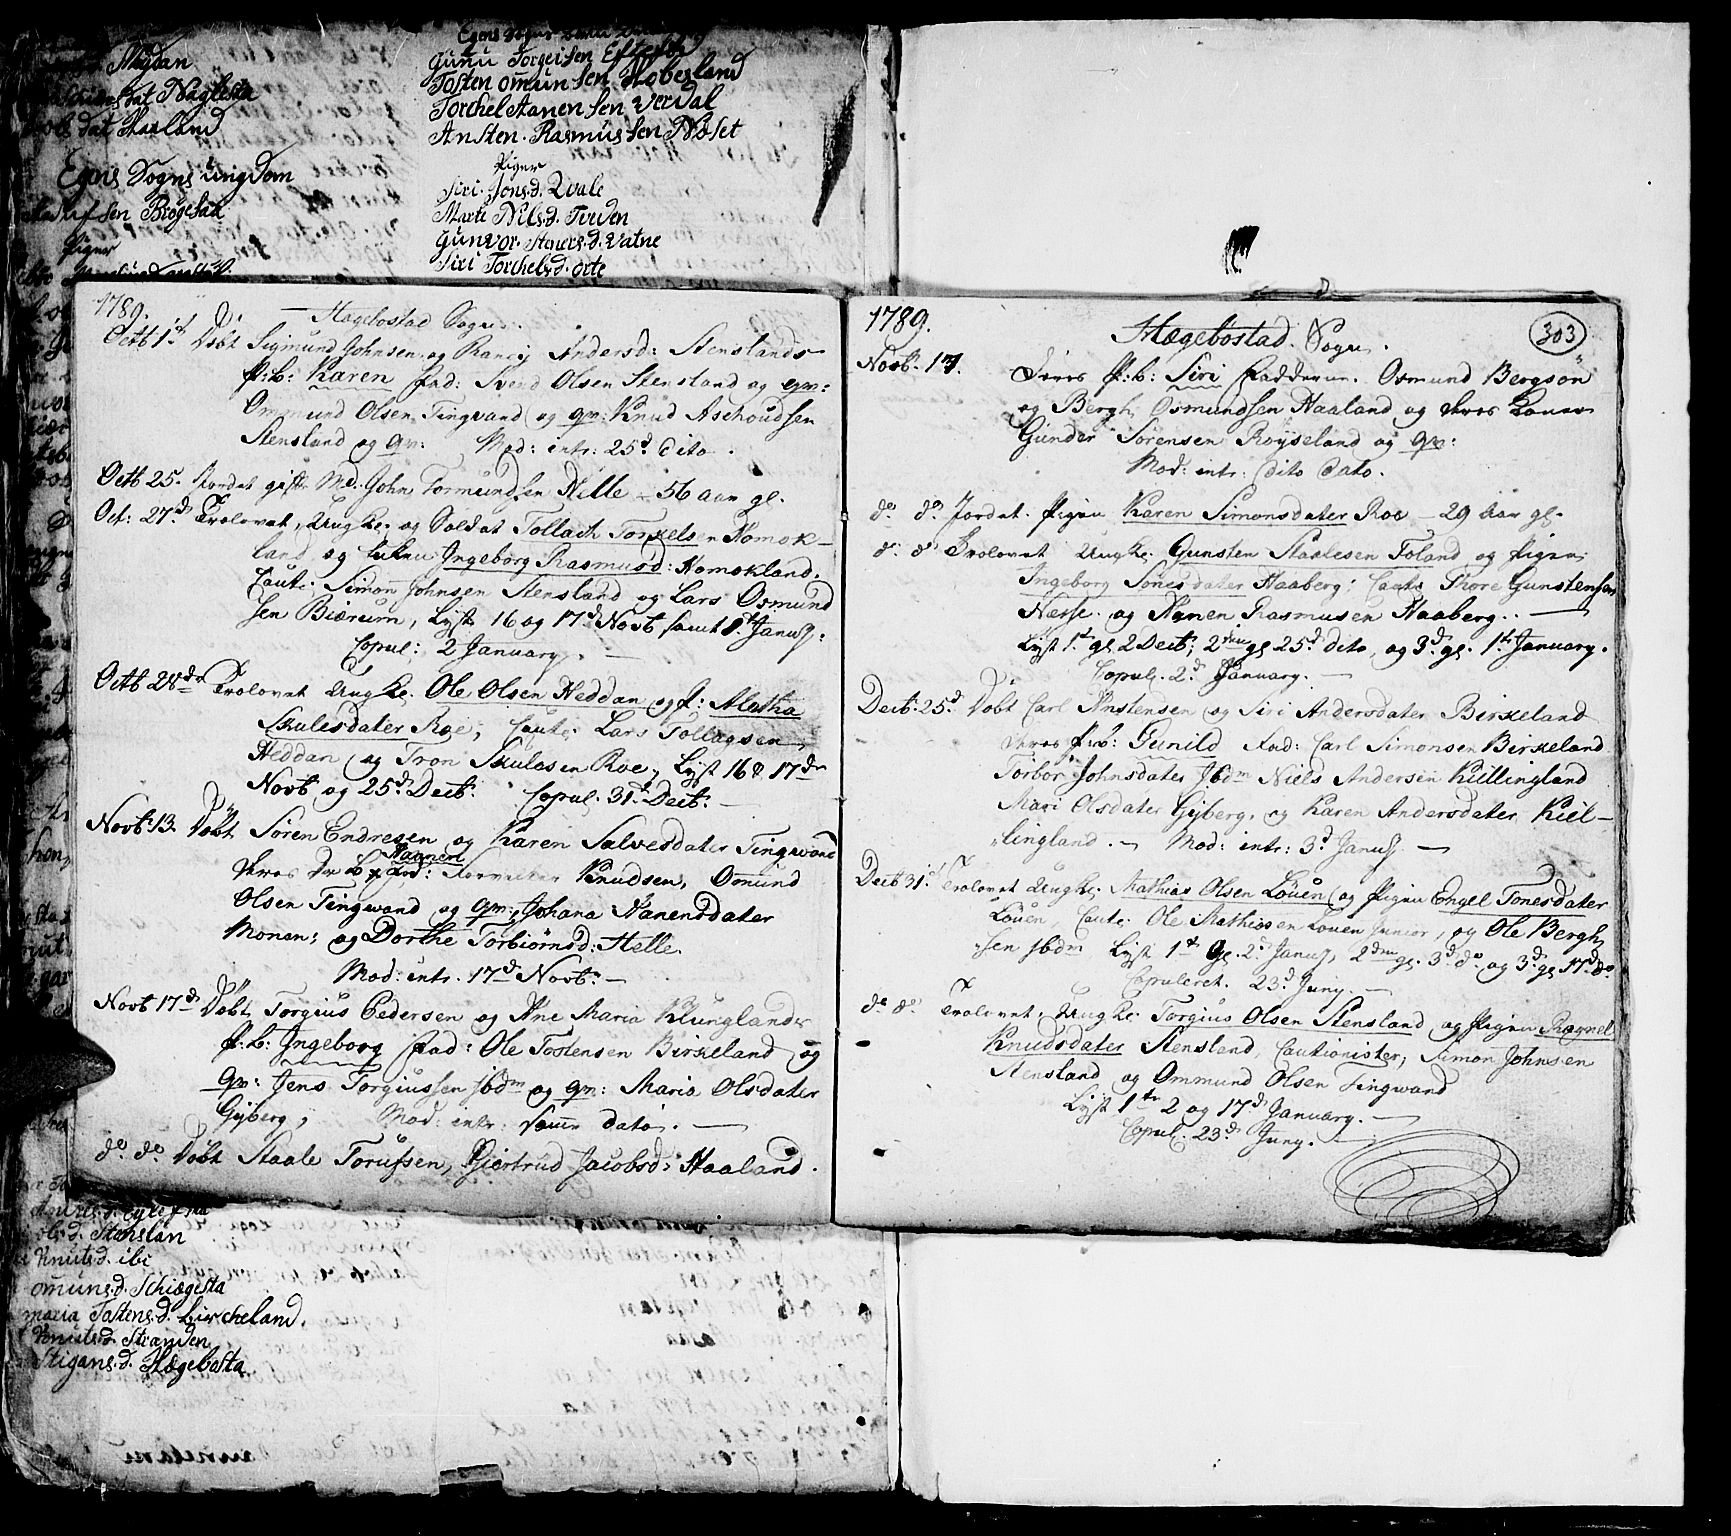 Naglesta
dat Haaland
Egens Sogns ungdom
sen Brøgesaa
Piger
Gunu Torgeisen
Tosten omunsen Hobesland
Torchel Aanensen Verdal
Ansten Rasmussen Nøset
Piger
Siri Jons.d. Qvale
Marte Nils.d. Tveden
Gunvor Steners.d. Vatne
Siri Torchels.d. orte
1789.
Hægebostad Sogn.
Octb 1d Döbt Sigmund Johnsen og Raney Andersd: Stenslands
P:b: Karen Fad: Svend Olsen Stensland og qv:
Ommund Olsen Tingvand og qv: Knud Aschoudsen
Stensland og qv: Mod: intr: 25d dito.
Octb 25. Jordet gift Md. John Tormundsen Hille - 56 aar gl.
Oct: 27d Trolovet, Ungke. og Soldat Tollach Torkelsen Homok-
land og Enken Ingeborg Rasmusd: Homokland.
Caut: Simon Johnsen Stensland og Lars Osmund
sen Biærum, Lyst 16 og 17d Novb samt 1t Janu:
Copul: 2 January.
Octb 28de Trolovet Ungke. Ole Olsen Heddan og P: Aletha
Skulesdater Roe, Caut: Lars Tollagsen
Heddan og Tron Skulesen Roe, Lyst 16 & 17de
Novb og 25d Decb: Copul: 31t Decb:
Novb: 13. Döbt Sören Endresen og Karen Salvesdater Tingvand
Aanert
deres Dr. B. Fad: Knudsen, Osmund
Olsen Tingwand og qv; Johana Hanensdater
Monen; og Dorthe Torbiörnsd: Helle.
Mod: intr. 17d Novb:
Novb 17d Döbt Torgius Pedersen og Ane Maria Klunglands
P: b: Ingeborg Fad: Ole Tostensen Birkeland og
qv: Jens Torgiussen ibdm og qv: Maria Olsdater
Gyberg; Mod: intr: Samme dato.
do do Döbt Staale Torufsen, Giertrud Jacobsd: Haaland.
1789.
Hægebostad Sogn.
303
Novb. 17. Deres P:b: Siri Fadderne. Osmund Bergson
og Bergh Osmundsen Haaland og deres Koner
Gunder Sörensen Röyseland og qv:
Mod: intr: dito dato.
do do Jordet Pigen Karen Simonsdater Roe - 29 aar gl.
do do Trolovet Ungke. Gunsten Staalesen Foland og Pigen
Ingeborg Tonesdater Haaberg; Caut: Thore Gunstensen
Næsse og Aanen Rasmusen Haaberg.
Lyst 1t gl 2 Decb; 2den gl 25d dito, og 3d gl. 1t January.
Copul. 2d January.
Decb: 25d Döbt Carl Anstensen og Siri Andersdater Birkeland
deres P:b: Gunild Fad: Carl Simonsen Birkeland
Torbor Johnsdater Ibdm Niels Andersen Killingland
Mari Olsdater Gyberg, og Karen Andersdater Kiel-
lingland. Mod: intr: 3d Janu.
Decb 31. Trolovet Ungke. Mathias Olsen Löuen og Pigen Engel Tonesdater
Löuen, Caut: Ole Mathiesen Louen junior, og Ole Bergh
sen ibdm Lyst 1t gl. 2d Janu, 2den gl. 3d do og 3d gl 17d do
Copuleret. 23d Juny.
do do Trolovet, Ungke. Torgius Olsen Stensland og Pigen Ragnel
Knudsdater Stensland, Cautionister, Simon Johnsen
Stensland og Ommund Olsen Tingvand
Lyst 1te 2 og 17d January.
Copul. 23d Juny.
ols.d. Stanslan
Knuts.d. ibi
omuns.d. Schiægesta
maria Tostens.d. Lircheland
Knuts.d. Stranden
Stigans.d. Hægebosta